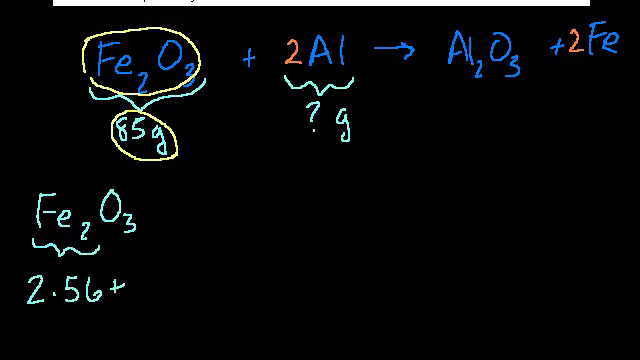 Fe₂O₃ + 2Al → Al₂O₃ + 2Fe
85g ? g
Fe₂O₃
2·56+